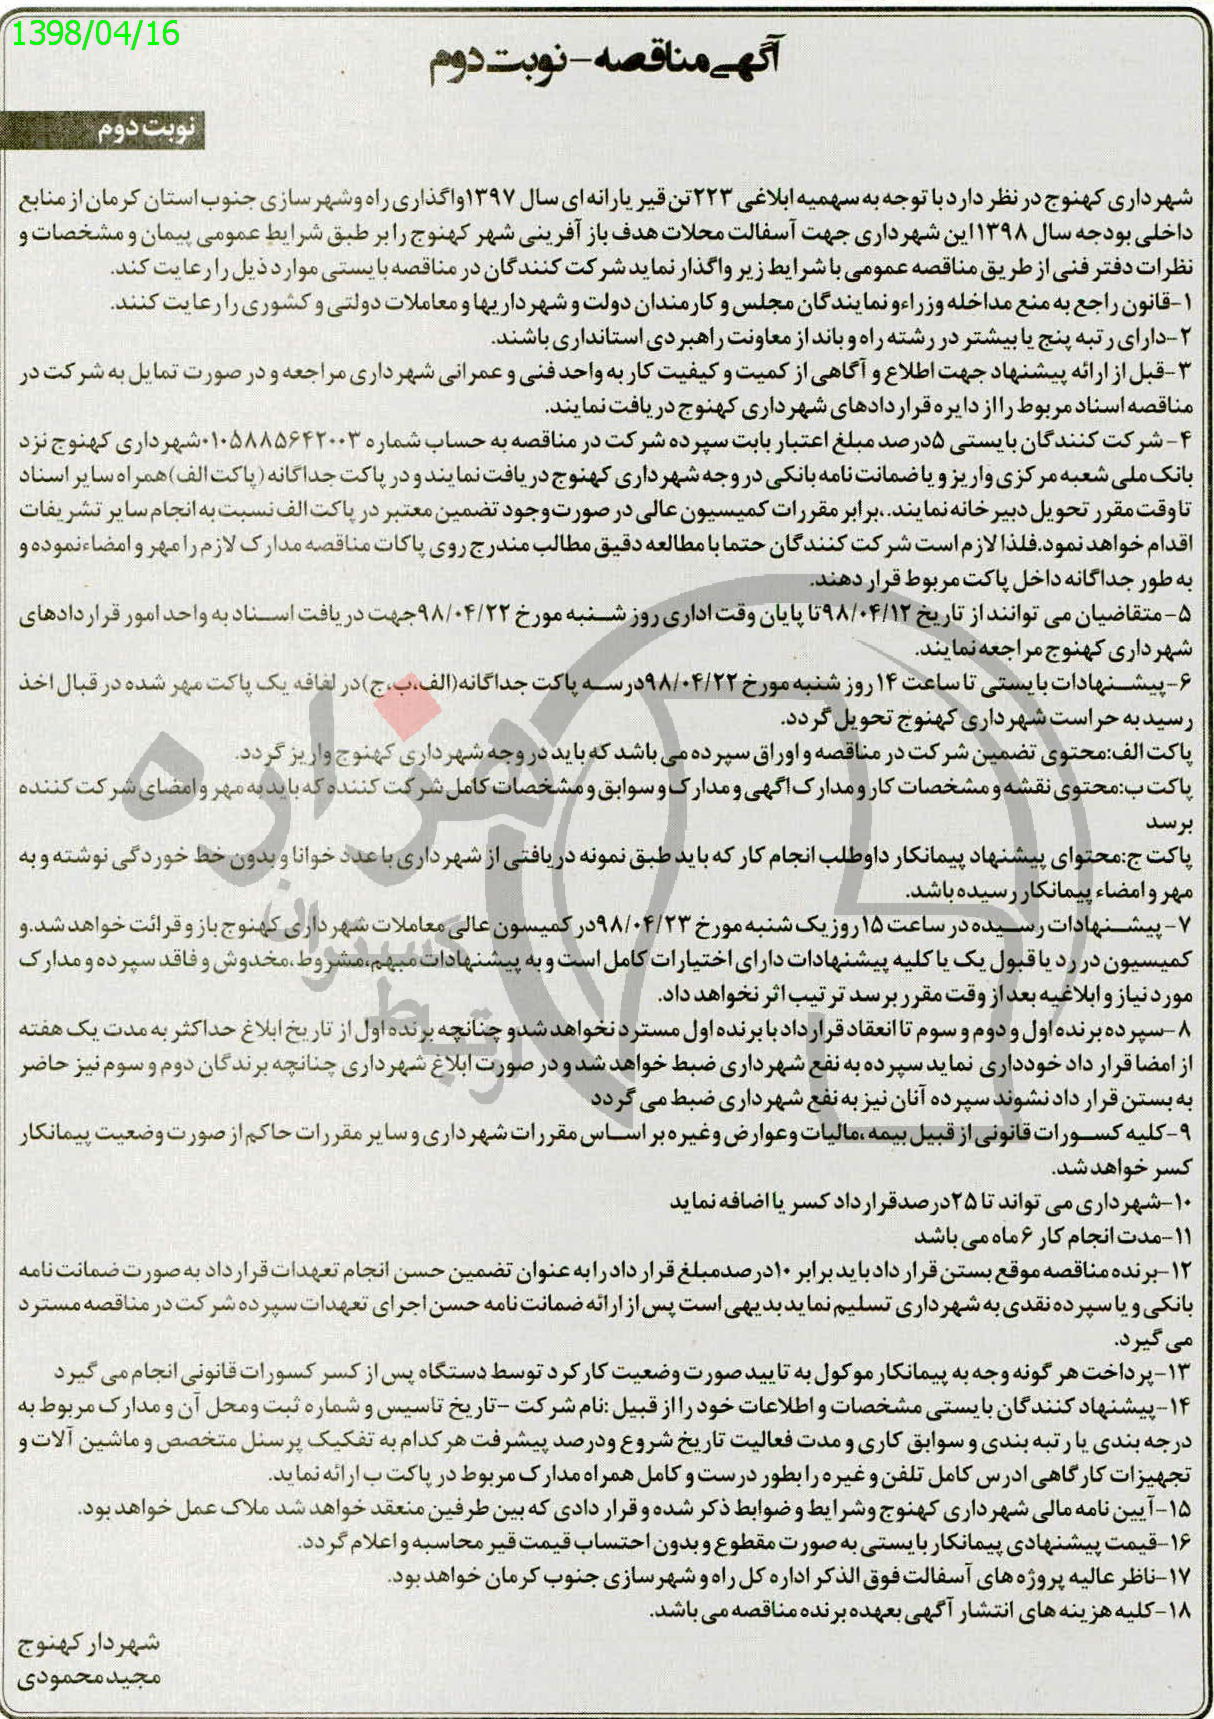 1398/04/16
آگهی مناقصه - نوبت دوم
نوبت دوم
شهرداری کهنوج در نظر دارد با توجه به سهمیه ابلاغی ۲۲۳تن قیر یارانه ای سال ۱۳۹۷واگذاری راه وشهر سازی جنوب استان کرمان از منابع
داخلی بودجه سال ۱۳۹۸این شهرداری جهت آسفالت محلات هدف باز آفرینی شهر کهنوج را بر طبق شرایط عمومی پیمان و مشخصات و
نظرات دفتر فنی از طریق مناقصه عمومی با شرایط زیر واگذار نماید شرکت کنندگان در مناقصه بایستی موارد ذیل را رعایت کند.
۱-قانون راجع به منع مداخله وزراءو نمایندگان مجلس و کارمندان دولت و شهرداریها و معاملات دولتی و کشوری را رعایت کنند.
۲-دارای رتبه پنج یا بیشتر در رشته راه و باند از معاونت راهبردی استانداری باشند.
۳-قبل از ارائه پیشنهاد جهت اطلاع و آگاهی از کمیت و کیفیت کار به واحد فنی و عمرانی شهرداری مراجعه و در صورت تمایل به شرکت در
مناقصه اسناد مربوط را از دایره قراردادهای شهرداری کهنوج دریافت نمایند.
۴-شرکت کنندگان بایستی ۵درصد مبلغ اعتبار بابت سپرده شرکت در مناقصه به حساب شماره ۰۱۰۵۸۸۵۶۴۲۰۰۳شهرداری کهنوج نزد
بانک ملی شعبه مرکزی واریز و یا ضمانت نامه بانکی در وجه شهرداری کهنوج دریافت نمایند و در پاکت جداگانه (پاکت الف)همراه سایر اسناد
تا وقت مقرر تحویل دبیرخانه نمایند.،برابر مقررات کمیسیون عالی در صورت وجود تضمین معتبر در پاکت الف نسبت به انجام سایر تشریفات
اقدام خواهد نمود.فلذا لازم است شرکت کنندگان حتما با مطالعه دقیق مطالب مندرج روی پاکات مناقصه مدارک لازم را مهر و امضاءنموده و
به طور جداگانه داخل پاکت مربوط قرار دهند.
۵-متقاضیان می توانند از تاریخ ۹۸/۰۴/۱۲تا پایان وقت اداری روز شنبه مورخ ۹۸/۰۴/۲۲جهت دریافت اسناد به واحد امور قراردادهای
شهرداری کهنوج مراجعه نمایند.
۶-پیشنهادات بایستی تا ساعت ۱۴ روز شنبه مورخ ۹۸/۰۴/۲۲درسه پاکت جداگانه(الف،ب،ج)در لفافه یک پاکت مهر شده در قبال اخذ
رسید به حراست شهرداری کهنوج تحویل گردد.
پاکت الف:محتوی تضمین شرکت در مناقصه و اوراق سپرده می باشد که باید در وجه شهرداری کهنوج واریز گردد.
پاکت ب:محتوی نقشه و مشخصات کار و مدارک اگهی و مدارک و سوابق و مشخصات کامل شرکت کننده که باید به مهر و امضای شرکت کننده
برسد
پاکت ج:محتوای پیشنهاد پیمانکار داوطلب انجام کار که باید طبق نمونه دریافتی از شهرداری با عدد خوانا و بدون خط خوردگی نوشته و به
مهر و امضاء پیمانکار رسیده باشد.
۷-پیشنهادات رسیده در ساعت ۱۵ روز یک شنبه مورخ ۹۸/۰۴/۲۳در کمیسون عالی معاملات شهرداری کهنوج باز و قرائت خواهد شد.و
کمیسیون در رد یا قبول یک یا کلیه پیشنهادات دارای اختیارات کامل است و به پیشنهادات مبهم،مشروط،مخدوش و فاقد سپرده و مدارک
مورد نیاز و ابلاغیه بعد از وقت مقرر برسد ترتیب اثر نخواهد داد.
۸-سپرده برنده اول و دوم و سوم تا انعقاد قرارداد با برنده اول مسترد نخواهد شدو چنانچه برنده اول از تاریخ ابلاغ حداکثر به مدت یک هفته
از امضا قرار داد خودداری نماید سپرده به نفع شهرداری ضبط خواهد شد و در صورت ابلاغ شهرداری چنانچه برندگان دوم و سوم نیز حاضر
به بستن قرار داد نشوند سپرده آنان نیز به نفع شهرداری ضبط می گردد
۹-کلیه کسورات قانونی از قبیل بیمه ،مالیات وعوارض وغیره بر اساس مقررات شهرداری و سایر مقررات حاکم از صورت وضعیت پیمانکار
کسر خواهد شد.
۱۰-شهرداری می تواند تا ۲۵درصدقرارداد کسر یا اضافه نماید
۱۱-مدت انجام کار ۶ماه می باشد
۱۲-برنده مناقصه موقع بستن قرار داد باید برابر ۱۰درصدمبلغ قرار داد را به عنوان تضمین حسن انجام تعهدات قرارداد به صورت ضمانت نامه
بانکی و یا سپرده نقدی به شهرداری تسلیم نماید بدیهی است پس از ارائه ضمانت نامه حسن اجرای تعهدات سپرده شرکت در مناقصه مسترد
می گیرد.
۱۳-پرداخت هر گونه وجه به پیمانکار موکول به تایید صورت وضعیت کارکرد توسط دستگاه پس از کسر کسورات قانونی انجام می گیرد
۱۴-پیشنهاد کنندگان بایستی مشخصات و اطلاعات خود را از قبیل :نام شرکت -تاریخ تاسیس و شماره ثبت ومحل آن و مدارک مربوط به
درجه بندی یا رتبه بندی و سوابق کاری و مدت فعالیت تاریخ شروع ودرصد پیشرفت هر کدام به تفکیک پرسنل متخصص و ماشین آلات و
تجهیزات کارگاهی ادرس کامل تلفن و غیره را بطور درست و کامل همراه مدارک مربوط در پاکت ب ارائه نماید.
۱۵-آیین نامه مالی شهرداری کهنوج وشرایط و ضوابط ذکر شده و قرار دادی که بین طرفین منعقد خواهد شد ملاک عمل خواهد بود.
۱۶-قیمت پیشنهادی پیمانکار بایستی به صورت مقطوع و بدون احتساب قیمت قیر محاسبه و اعلام گردد.
۱۷-ناظر عالیه پروژه های آسفالت فوق الذکر اداره کل راه و شهرسازی جنوب کرمان خواهد بود.
۱۸-کلیه هزینه های انتشار آگهی بعهده برنده مناقصه می باشد.
شهردار کهنوج
مجید محمودی
هزاره